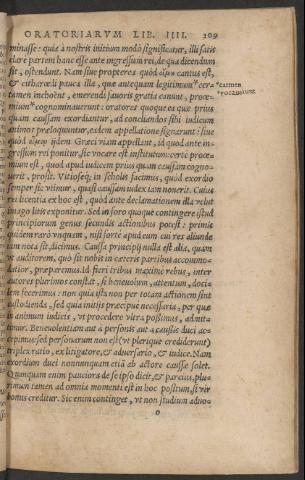 ORATORIARVM LIB. IIII. 209
minasse: quia à nostris initium modò significatur, illi satis
clare partem hanc esse ante ingressum rei, de qua dicendum
sit, ostendunt. Nam siue propterea quòd οἴμη cantus est,
& citharœdi pauca illa, quæ antequam legitimum* cer-
tamen inchoent, emerendi fauoris gratia canunt, proœ-
mium* cognominauerunt: oratores quoque ea quæ prius
quam caussam exordiantur, ad conciliandos sibi iudicum
animos præloquuntur, eadem appellatione signarunt: siue
quòd οἶμον ijdem Græci viam appellant, id quod ante in-
gressum rei ponitur, sic vocare est institutum: certè proœ-
mium est, quod apud iudicem prius quàm caussam cogno-
uerit, prosit. Vitioseq; in scholis facimus, quòd exordio
semper sic vtimur, quasi caussam iudex iam nouerit. Cuius
rei licentia ex hoc est, quòd ante declamationem illa velut
imago litis exponitur. Sed in foro quoque contingere istud
principiorum genus secundis actionibus potest: primis
quidem rarò vnquam, nisi fortè apud eum cui res aliunde
iam nota sit, dicimus. Caussa principij nulla est alia, quàm
vt auditorem, quò sit nobis in cæteris partibus accommo-
datior, præparemus. Id fieri tribus maximè rebus, inter
autores plurimos constat, si beneuolum, attentum, doci-
lem fecerimus: non quia ista non per totam actionem sint
custodienda, sed quia initijs præcipuè necessaria, per quæ
in animum iudicis, vt procedere vltra possimus, admit-
timur. Beneuolentiam aut à personis aut à caussis duci ac-
cepimus: sed personarum non est (vt plerique crediderunt)
triplex ratio, ex litigatore, & aduersario, & iudice. Nam
exordium duci nonnunquam etiā ab actore caussæ solet.
Quanquam enim pauciora de se ipso dicit, & parcius, plu-
rimum tamen ad omnia momenti est in hoc positum, si vir
bonus creditur. Sic enim continget, vt non studium aduo-
o